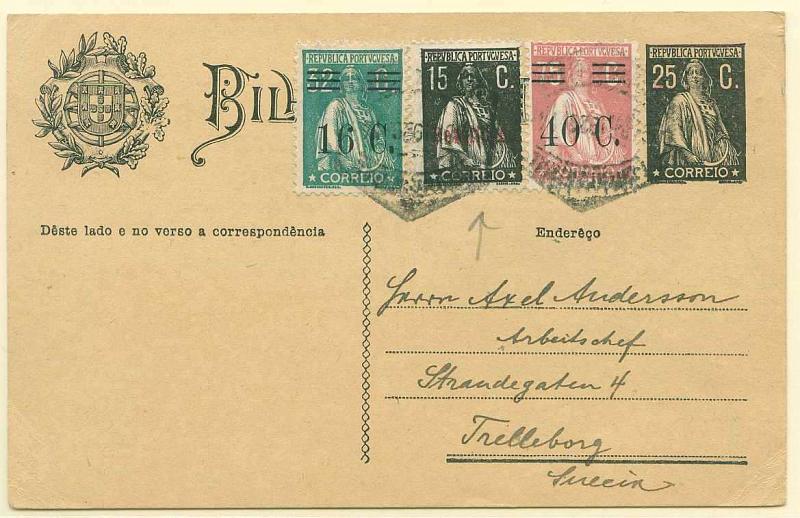 BILH
REPVBLICA PORTVGVESA
32 C.
16 C.
CORREIO
REPVBLICA PORTVGVESA
15 C.
CORREIO
REPVBLICA PORTVGVESA
C.
40 C.
REPVBLICA PORTVGVESA
25 C.
CORREIO
Dêste lado e no verso a correspondência
Enderêço
Herrn Axel Andersson
Arbeitschef
Strandegaten 4
Trelleborg
Suecia